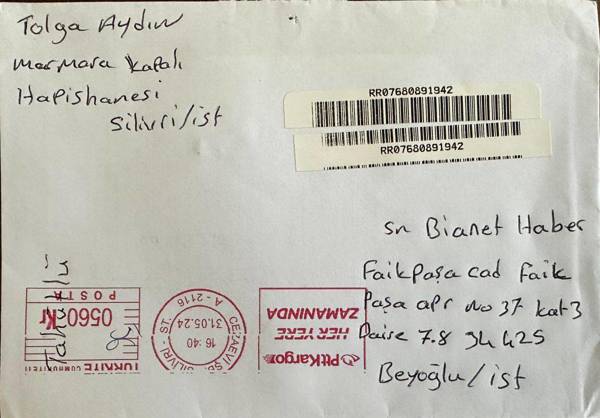 Tolga Aydın
Marmara Kapalı
Hapishanesi
Silivri/ist
RR07680891942
RR07680891942
sn Bianet Haber
Faikpaşa cad Faik
Paşa apr no 37 kat3
Daire 7.8 34425
Beyoğlu/ist
Taahütlü
TÜRKİYE CUMHURİYETİ
0560 Kr
POSTA
CEZAEVİ ŞB. SİLİVRİ - İST.
16:40
31.05.24
A - 2116
PttKargo
HER YERE
ZAMANINDA